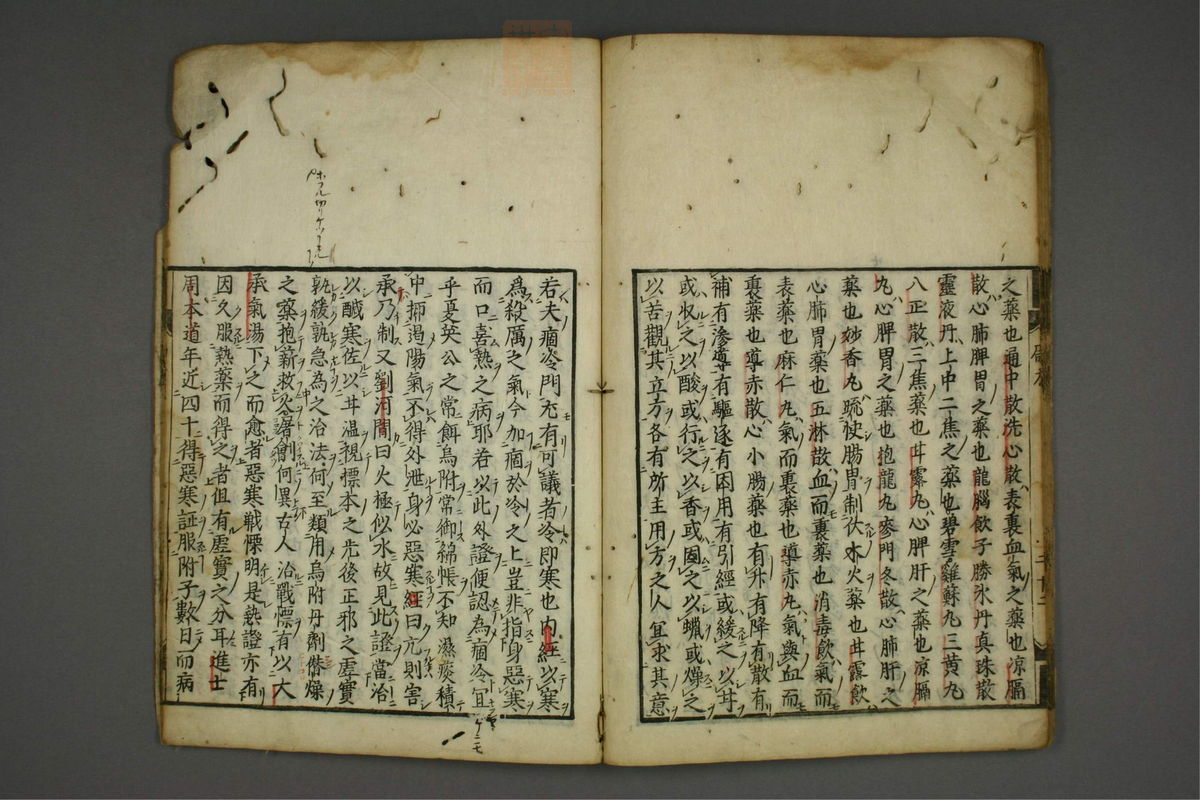 之藥也通中散洗心散表裏血氣之藥也凉膈
散心肺脾胃之藥也龍腦飲子勝氷丹真珠散
靈液丹上中二焦之藥也碧雪雞蘇丸三黃丸
八正散三焦藥也甘露丸心脾肝之藥也凉膈
丸心脾胃之藥也抱龍丸麥門冬散心肺肝之
藥也妙香丸疏快腸胃制伏水火藥也甘露飲
心肺胃藥也五淋散血而裏藥也消毒飲氣而
表藥也麻仁丸氣而裏藥也導赤丸氣與血而
裏藥也導赤散心小腸藥也有升有降有散有
補有滲導有驅逐有因用有引經或緩之以甘
或收之以酸或行之以香或固之以蠟或燥之
以苦觀其立方各有所主用方之人冝求其意
若夫痼冷門尤有可議者冷即寒也内經以寒
為殺厲之氣今加痼於冷之上豈非指身惡寒
而口喜熱之病耶若以此外證便認為痼冷冝
乎夏英公之常餌烏附常御綿帳不知濕痰積
中抑遏陽氣不得外泄身必惡寒經曰亢則害
承乃制又劉河間曰火極似水故見此證當治
以醎寒佐以甘温視標本之先後正邪之虛實
孰緩孰急為之治法何至類用烏附丹劑僭燥
之藥抱薪救火屠劊何異古人治戰慄有以大
承氣湯下之而愈者惡寒戰慄明是熱證亦有
因久服熱藥而得之者但有虛實之分耳進士
周本道年近四十得惡寒証服附子數日而病